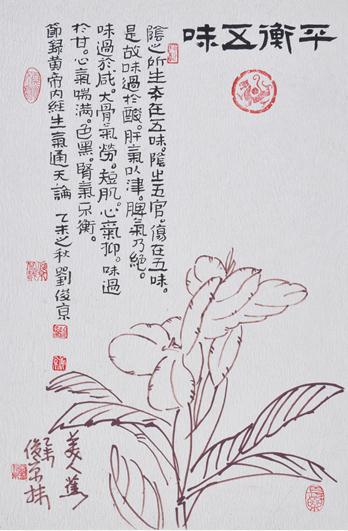 平衡五味
陰之所生本在五味。陰生五官。傷在五味。
是故味過於酸。肝氣以津。脾氣乃絕。
味過於咸。大骨氣勞。短肌。心氣抑。味過
於甘。心氣喘滿。色黑。腎氣不衡。
節錄黃帝內經生氣通天論 乙未之秋 劉俊京
美人蕉
乙未俊京